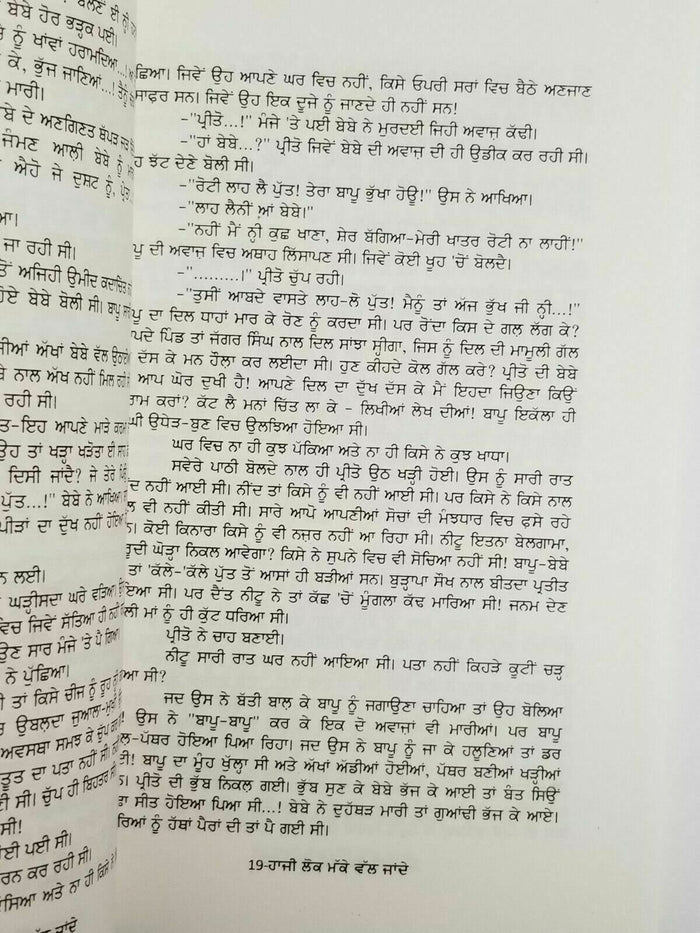 ਬਲਣੋਂ ਈ ਨ੍ਹੀਂ
ਬੇਬੇ ਹੋਰ ਭੜ੍ਹਕ ਪਈ।
ਨੂੰ ਖਾਂਵਾਂ ਹਰਾਮਦਿਆ...!
ਕੇ, ਭੁੱਜ ਜਾਣਿਆਂ...!
ਮਾਰੀ।
ਦੇ ਅਣਗਿਣਤ ਥੱਪੜ
ਜੰਮਣ ਆਲੀ ਬੇਬੇ ਨੂੰ
ਐਹੋ ਜੇ ਦੁਸ਼ਟ ਨੂੰ,
ਜਾ ਰਹੀ ਸੀ।
ਤੋਂ ਅਜਿਹੀ ਉਮੀਦ ਕਦਾਚਿਤ
ਹੋਏ ਬੇਬੇ ਬੋਲੀ ਸੀ। ਬਾਪੂ
ਜੀਆਂ ਅੱਖਾਂ ਬੇਬੇ ਵੱਲ
ਨਾਲ ਅੱਖ ਨਹੀਂ ਮਿਲ ਰਹੀ
ਰਹੀ ਸੀ।
ਇਹ ਆਪਣੇ ਮਾੜੇ ਕਰਮ
ਉਹ ਤਾਂ ਖੜ੍ਹਾ ਖੜੋਤਾ ਈ
ਦਿਸੀ ਜਾਂਦੈ? ਜੇ ਤੇਰੇ
ਪੁੱਤ...!" ਬੇਬੇ ਨੇ ਆਖਿਆ
ਪੀੜਾਂ ਦਾ ਦੁੱਖ ਨਹੀਂ ਹੋਇਆ
ਲਈ।
ਘੜ੍ਹੀਸਦਾ ਘਰੇ ਵੜਿਆ
ਵਿਚ ਜਿਵੇਂ ਸੱਤਿਆ ਹੀ ਨਹੀਂ
ਸਾਰ ਮੰਜੇ 'ਤੇ ਪੈ ਗਿਆ
ਨੇ ਪੁੱਛਿਆ।
ਤਾਂ ਕਿਸੇ ਚੀਜ਼ ਨੂੰ ਰੂਹ
ਉਬਲਦਾ ਜੁਆਲਾ-ਮੁਖੀ
ਅਵਸਥਾ ਸਮਝ ਕੇ ਚੁੱਪ ਕਰ
ਦਾ ਪਤਾ ਨਹੀਂ ਸੀ।
ਸੀ। ਚੁੱਪ ਹੀ ਬਿਹਤਰ ਸੀ
ਸੀ!
ਪਈ ਸੀ।
ਕਰ ਰਹੀ ਸੀ।
ਅਤੇ ਨਾ ਹੀ ਕਿਸੇ ਨੇ
ਜਾਂਦੇ
ਛਿਆ। ਜਿਵੇਂ ਉਹ ਆਪਣੇ ਘਰ ਵਿਚ ਨਹੀਂ, ਕਿਸੇ ਓਪਰੀ ਸਰਾਂ ਵਿਚ ਬੈਠੇ ਅਣਜਾਣ
ਸਾਫ਼ਰ ਸਨ। ਜਿਵੇਂ ਉਹ ਇਕ ਦੂਜੇ ਨੂੰ ਜਾਣਦੇ ਹੀ ਨਹੀਂ ਸਨ!
-"ਪ੍ਰੀਤੋ...!" ਮੰਜੇ 'ਤੇ ਪਈ ਬੇਬੇ ਨੇ ਮੁਰਦਈ ਜਿਹੀ ਅਵਾਜ਼ ਕੱਢੀ।
-"ਹਾਂ ਬੇਬੇ...?" ਪ੍ਰੀਤੋ ਜਿਵੇਂ ਬੇਬੇ ਦੀ ਅਵਾਜ਼ ਦੀ ਹੀ ਉਡੀਕ ਕਰ ਰਹੀ ਸੀ।
ਹ ਝੱਟ ਦੇਣੇ ਬੋਲੀ ਸੀ।
-"ਰੋਟੀ ਲਾਹ ਲੈ ਪੁੱਤ! ਤੇਰਾ ਬਾਪੂ ਭੁੱਖਾ ਹੋਊ!" ਉਸ ਨੇ ਆਖਿਆ।
-"ਲਾਹ ਲੈਨੀਂ ਆਂ ਬੇਬੇ।"
-"ਨਹੀਂ ਮੈਂ ਨ੍ਹੀ ਕੁਛ ਖਾਣਾ, ਸ਼ੇਰ ਬੱਗਿਆ-ਮੇਰੀ ਖਾਤਰ ਰੋਟੀ ਨਾ ਲਾਹੀਂ!"
ਪੂ ਦੀ ਅਵਾਜ਼ ਵਿਚ ਅਥਾਹ ਲਿੱਸਾਪਣ ਸੀ। ਜਿਵੇਂ ਕੋਈ ਖੂਹ 'ਚੋਂ ਬੋਲਦੈ।
-".........।" ਪ੍ਰੀਤੋ ਚੁੱਪ ਰਹੀ।
-"ਤੁਸੀਂ ਆਬਦੇ ਵਾਸਤੇ ਲਾਹ-ਲੋ ਪੁੱਤ! ਮੈਨੂੰ ਤਾਂ ਅੱਜ ਭੁੱਖ ਜੀ ਨ੍ਹੀ...!"
ਪੂ ਦਾ ਦਿਲ ਧਾਹਾਂ ਮਾਰ ਕੇ ਰੋਣ ਨੂੰ ਕਰਦਾ ਸੀ। ਪਰ ਰੋਂਦਾ ਕਿਸ ਦੇ ਗਲ ਲੱਗ ਕੇ?
ਪਦੇ ਪਿੰਡ ਤਾਂ ਜੱਗਰ ਸਿੰਘ ਨਾਲ ਦਿਲ ਸਾਂਝਾ ਸ੍ਹੀਗਾ, ਜਿਸ ਨੂੰ ਦਿਲ ਦੀ ਮਾਮੂਲੀ ਗੱਲ
ਦੱਸ ਕੇ ਮਨ ਹੌਲਾ ਕਰ ਲਈਦਾ ਸੀ। ਹੁਣ ਕੀਹਦੇ ਕੋਲ ਗੱਲ ਕਰੇ? ਪ੍ਰੀਤੋ ਦੀ ਬੇਬੇ
ਆਪ ਘੋਰ ਦੁਖੀ ਹੈ! ਆਪਣੇ ਦਿਲ ਦਾ ਦੁੱਖ ਦੱਸ ਕੇ ਮੈਂ ਇਹਦਾ ਜਿਉਣਾ ਕਿਉਂ
ਰਾਮ ਕਰਾਂ? ਕੱਟ ਲੈ ਮਨਾਂ ਚਿੱਤ ਲਾ ਕੇ - ਲਿਖੀਆਂ ਲੇਖ ਦੀਆਂ! ਬਾਪੂ ਇਕੱਲਾ ਹੀ
ਉਧੇੜ-ਬੁਣ ਵਿਚ ਉਲਝਿਆ ਹੋਇਆ ਸੀ।
ਘਰ ਵਿਚ ਨਾ ਹੀ ਕੁਝ ਪੱਕਿਆ ਅਤੇ ਨਾ ਹੀ ਕਿਸੇ ਨੇ ਕੁਝ ਖਾਧਾ।
ਸਵੇਰੇ ਪਾਠੀ ਬੋਲਦੇ ਨਾਲ ਹੀ ਪ੍ਰੀਤੋ ਉਠ ਖੜ੍ਹੀ ਹੋਈ। ਉਸ ਨੂੰ ਸਾਰੀ ਰਾਤ
ਦ ਨਹੀਂ ਆਈ ਸੀ। ਨੀਂਦ ਤਾਂ ਕਿਸੇ ਨੂੰ ਵੀ ਨਹੀਂ ਆਈ ਸੀ। ਪਰ ਕਿਸੇ ਨੇ ਕਿਸੇ ਨਾਲ
ਲ ਵੀ ਨਹੀਂ ਕੀਤੀ ਸੀ। ਸਾਰੇ ਆਪੋ ਆਪਣੀਆਂ ਸੋਚਾਂ ਦੀ ਮੰਝਧਾਰ ਵਿਚ ਫਸੇ ਰਹੇ
ਕੋਈ ਕਿਨਾਰਾ ਕਿਸੇ ਨੂੰ ਵੀ ਨਜ਼ਰ ਨਹੀਂ ਆ ਰਿਹਾ ਸੀ। ਨੀਟੂ ਇਤਨਾ ਬੇਲਗਾਮਾ,
ਹੂਦੀ ਘੋੜ੍ਹਾ ਨਿਕਲ ਆਵੇਗਾ? ਕਿਸੇ ਨੇ ਸੁਪਨੇ ਵਿਚ ਵੀ ਸੋਚਿਆ ਨਹੀਂ ਸੀ! ਬਾਪੂ-ਬੇਬੇ
ਤਾਂ 'ਕੱਲੇ-'ਕੱਲੇ ਪੁੱਤ ਤੋਂ ਆਸਾਂ ਹੀ ਬੜੀਆਂ ਸਨ। ਬੁੜ੍ਹਾਪਾ ਸੌਖ ਨਾਲ ਬੀਤਦਾ ਪ੍ਰਤੀਤ
ਇਆ ਸੀ। ਪਰ ਦੈਂਤ ਨੀਟੂ ਨੇ ਤਾਂ ਕੱਛ 'ਚੋਂ ਮੂੰਗਲਾ ਕੱਢ ਮਾਰਿਆ ਸੀ! ਜਨਮ ਦੇਣ
ਲੀ ਮਾਂ ਨੂੰ ਹੀ ਕੁੱਟ ਧਰਿਆ ਸੀ।
ਪ੍ਰੀਤੋ ਨੇ ਚਾਹ ਬਣਾਈ।
ਨੀਟੂ ਸਾਰੀ ਰਾਤ ਘਰ ਨਹੀਂ ਆਇਆ ਸੀ। ਪਤਾ ਨਹੀਂ ਕਿਹੜੇ ਕੂਟੀਂ ਚੜ੍ਹ
ਇਆ ਸੀ?
ਜਦ ਉਸ ਨੇ ਬੱਤੀ ਬਾਲ ਕੇ ਬਾਪੂ ਨੂੰ ਜਗਾਉਣਾ ਚਾਹਿਆ ਤਾਂ ਉਹ ਬੋਲਿਆ
ਉਸ ਨੇ "ਬਾਪੂ-ਬਾਪੂ" ਕਰ ਕੇ ਇਕ ਦੋ ਅਵਾਜ਼ਾਂ ਵੀ ਮਾਰੀਆਂ। ਪਰ ਬਾਪੂ
ਲ-ਪੱਥਰ ਹੋਇਆ ਪਿਆ ਰਿਹਾ। ਜਦ ਉਸ ਨੇ ਬਾਪੂ ਨੂੰ ਜਾ ਕੇ ਹਲੂਣਿਆਂ ਤਾਂ ਡਰ
ਬਾਪੂ ਦਾ ਮੂੰਹ ਖੁੱਲ੍ਹਾ ਸੀ ਅਤੇ ਅੱਖਾਂ ਅੱਡੀਆਂ ਹੋਈਆਂ, ਪੱਥਰ ਬਣੀਆਂ ਖੜ੍ਹੀਆਂ
ਪ੍ਰੀਤੋ ਦੀ ਭੁੱਬ ਨਿਕਲ ਗਈ। ਭੁੱਬ ਸੁਣ ਕੇ ਬੇਬੇ ਭੱਜ ਕੇ ਆਈ ਤਾਂ ਬੰਤ ਸਿਉਂ
ਸੀਤ ਹੋਇਆ ਪਿਆ ਸੀ...! ਬੇਬੇ ਨੇ ਦੁਹੱਥੜ ਮਾਰੀ ਤਾਂ ਗੁਆਂਢੀ ਭੱਜ ਕੇ ਆਏ।
ਰਿਆਂ ਨੂੰ ਹੱਥਾਂ ਪੈਰਾਂ ਦੀ ਤਾਂ ਪੈ ਗਈ ਸੀ।
19-ਹਾਜੀ ਲੋਕ ਮੱਕੇ ਵੱਲ ਜਾਂਦੇ